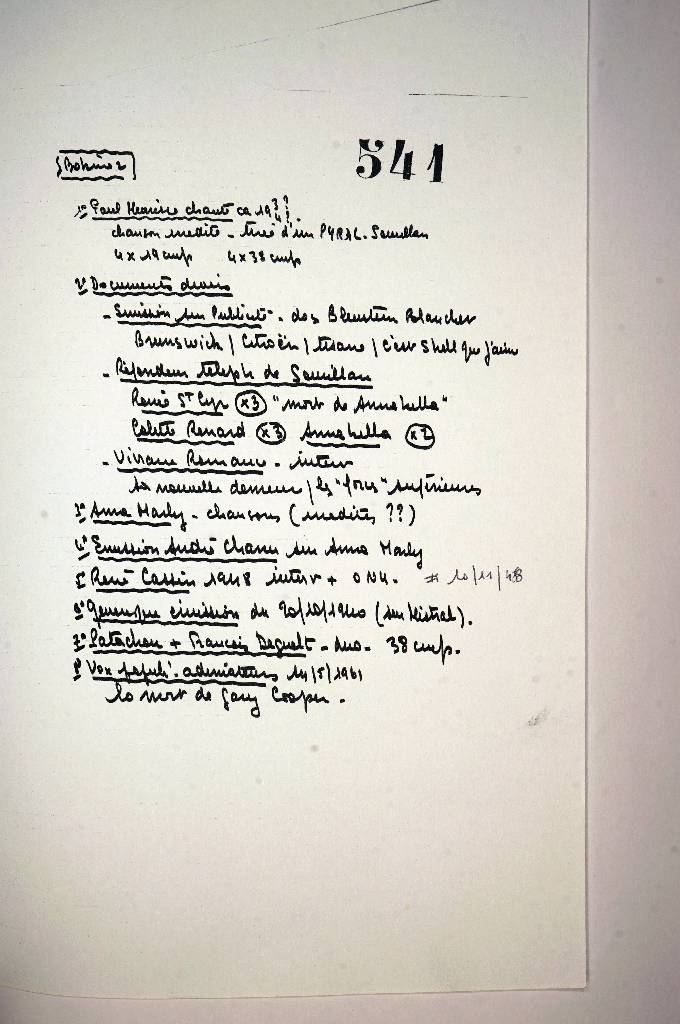 541
Bobino 2
1° Paul Meurisse chante ca 19
chanson inedite - tiré d'un PYRAL. Souvillan
4 x 19 cm/s 4 x 38 cm/s
2° Documents divers
- Emission sur Publicité - dos Bleustein Blanchet
Brunswick / Citroën / / c'est Shell que j'aime
- Répondeur téléph de Souvillan
Renée St Cyr x3 "mort de Annabella"
Colette Renard x3 Annabella x2
- Viviane Romance - interv
Sa nouvelle demeure / les "forces" supérieures
3° Anna Marly - chansons (inedites ??)
4° Emission André Chanu sur Anna Marly
5° René Cassin 1948 interv + ONU. # 10/11/48
6° émission du 20/10/1940 (sur Mistral).
7° Patachou + Francois Deguelt - duo - 38 cm/s.
8° Vox populi. 14/5/1961
la mort de Gary Cooper.